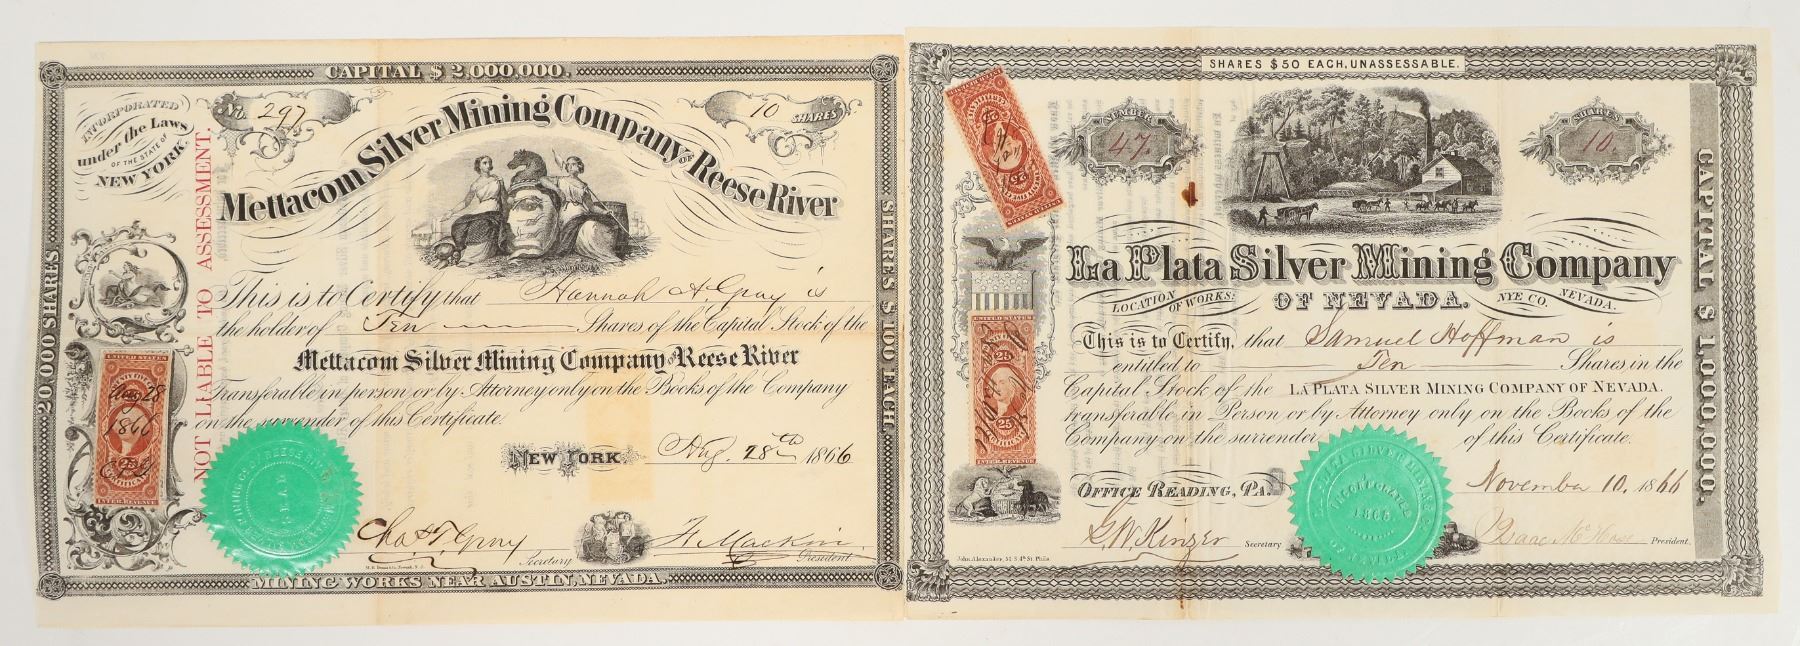 CAPITAL $ 2,000,000.
INCORPORATED
under the Laws
OF THE STATE OF
NEW YORK.
No. 297
10 SHARES
Mettacom Silver Mining Company OF Reese River
NOT LIABLE TO ASSESSMENT.
20,000 SHARES
SHARES $ 100 EACH.
This is to Certify that Hannah A. Gray is
the holder of Ten Shares of the Capital Stock of the
Mettacom Silver Mining Company OF Reese River
Transferable in person or by Attorney only on the Books of the Company
on the surrender of this Certificate.
UNITED STATES
Aug 28
1866
25
CERTIFICATE
INTER. REVENUE
NEW YORK. Aug. 28th 1866
Chas T. Gray Secretary
President
MINING WORKS NEAR AUSTIN, NEVADA.
SHARES $50 EACH, UNASSESSABLE.
NUMBER
47.
SHARES
10.
CAPITAL $ 1,000,000.
La Plata Silver Mining Company
OF NEVADA.
LOCATION OF WORKS: NYE CO. NEVADA.
This is to Certify, that Samuel Hoffman is
entitled to Ten Shares in the
Capital Stock of the LA PLATA SILVER MINING COMPANY OF NEVADA.
transferable in Person or by Attorney only on the Books of the
Company on the surrender of this Certificate.
25 25
CERTIFICATE
INTER. REVENUE
OFFICE READING, PA. November 10, 1866
LA PLATA SILVER MINING CO.
INCORPORATED
1865
OF NEVADA
G. W. Kinzer Secretary
Isaac McHose President.
John Alexander, 52 S 4th St. Phila